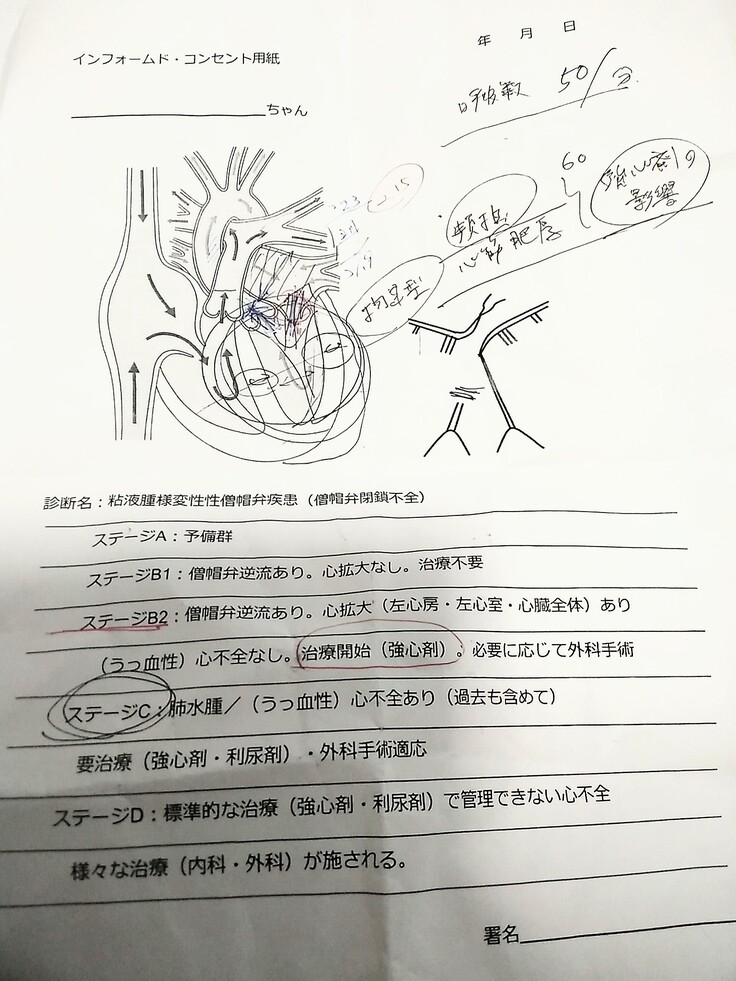 年 月 日
インフォームド・コンセント用紙
ちゃん
呼吸数 50/分
60
強心剤の
影響
頻拍
心筋肥厚
拘束型
診断名：粘液腫様変性性僧帽弁疾患（僧帽弁閉鎖不全）
ステージA：予備群
ステージB1：僧帽弁逆流あり。心拡大なし。治療不要
ステージB2：僧帽弁逆流あり。心拡大（左心房・左心室・心臓全体）あり
（うっ血性）心不全なし。治療開始（強心剤）。必要に応じて外科手術
ステージC：肺水腫／（うっ血性）心不全あり（過去も含めて）
要治療（強心剤・利尿剤）・外科手術適応
ステージD：標準的な治療（強心剤・利尿剤）で管理できない心不全
様々な治療（内科・外科）が施される。
署名